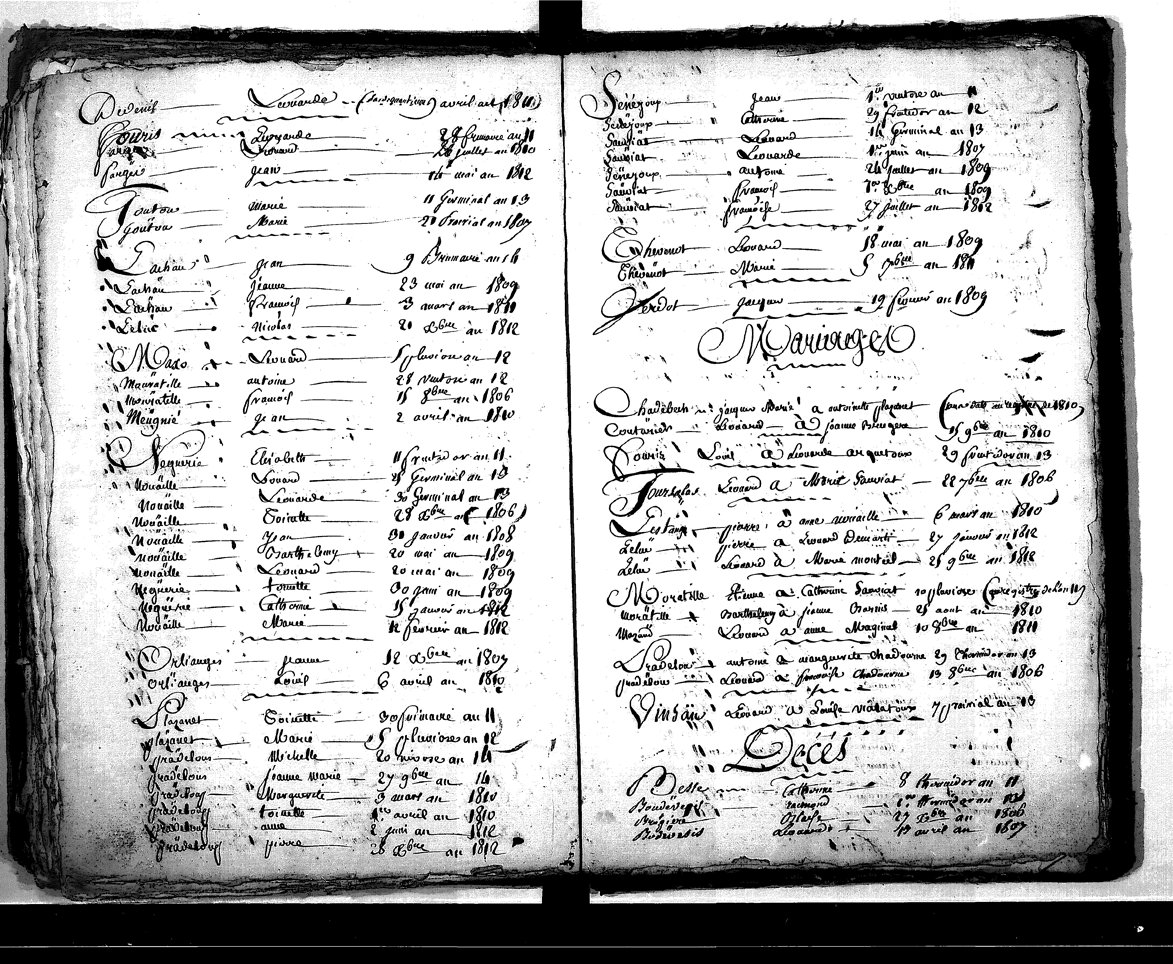 Léonarde avril 1811
Fouris Léonarde 28 frimaire an 11
Léonard 26 juillet an 1810
Farge Jean 14 mai an 1812
Goutou Marie 11 Germinal an 13
Goutou Marie 21 Prairial an 1807
Lachau Jean 9 Brumaire an 16
Lachau Jeanne 23 mai an 1809
Lachau françois 3 mars an 1810
Nicolas 20 xbre an 1812
Mazo Léonard 5 pluviose an 12
Mauratille antoine 28 ventose an 12
Moratille françois 15 8bre an 1806
Meügnié Jean 2 avril an 1810
Neguerie Elisabeth 11 fructidor an 11
Noüaille Léonard 25 Germinal an 13
Noüaille Léonarde 30 Germinal an 13
Noüaille Toinette 28 xbre an 1806
Noüaille Jean 30 Janvier an 1808
Noüaille Barthelemy 20 mai an 1809
Noüaille Léonard 20 mai an 1809
Neguerie toinette Juin an 1809
Neguerie Catherine 15 Janvier an 1812
Noüaille Marie 12 fevrier an 1812
Orlianges Jeanne 12 xbre an 1807
Orlianges Louis 6 avril an 1810
Plazanet Toinette 30 frimaire an 11
plazanet Marie 5 pluviose an 12
pradeloux Michelle 20 nivose an 14
pradeloux Jeanne Marie 27 9bre an 14
pradeloux Marguerite 3 mars an 1810
pradeloux toinette 1er avril an 1810
pradeloux anne 2 juin an 1812
pradeloux pierre 28 xbre an 1812
Senéjoux Jean 1er ventose an 11
Senéjoux Catherine 29 fructidor an 12
Sauviat Léonard 14 Germinal an 13
Sauviat Léonarde 1er juin an 1807
Senéjoux antoine 24 juillet an 1809
Sauviat françois 1er xbre an 1809
Sauviat françoise 27 juillet an 1812
Thevenot Léonard 18 mai an 1809
Thevenot Marie 5 7bre an 1811
Verdot Jacques 19 fevrier an 1809
Mariages
Chadebech Jacques Marie à antoinette plazanet 1810
Couturier Léonard à Jeanne Brugere 15 9bre an 1810
Fouris Louis à Léonarde arguetoux 29 fructidor an 13
Toursalas Léonard à Marie Sauviat 22 7bre an 1806
Lestang pierre à anne nouaille 6 mars an 1810
Lelïe pierre à Léonard Demarti 27 janvier an 1812
Lelïe Léonard à Marie monteil 25 9bre an 1812
Moratille Etienne à Catherine Sauviat 10 pluviose
Moratille Barthelemy à Jeanne 25 aout an 1810
Mazaud Léonard à anne Maginat 10 8bre an 1811
Pradeloux antoine à marguerite Chadourne 29 thermidor an 13
pradeloux Léonard à françoise Chadourne 13 8bre an 1806
Vinsau Léonard à Louise vialatoux 7 prairial an 13
Décés
Besse Catherine 8 thermidor an 11
Boudevesis raimond 1er thermidor an
Brugiere 27 xbre an 1806
Boudevesis Léonard avril an 1807